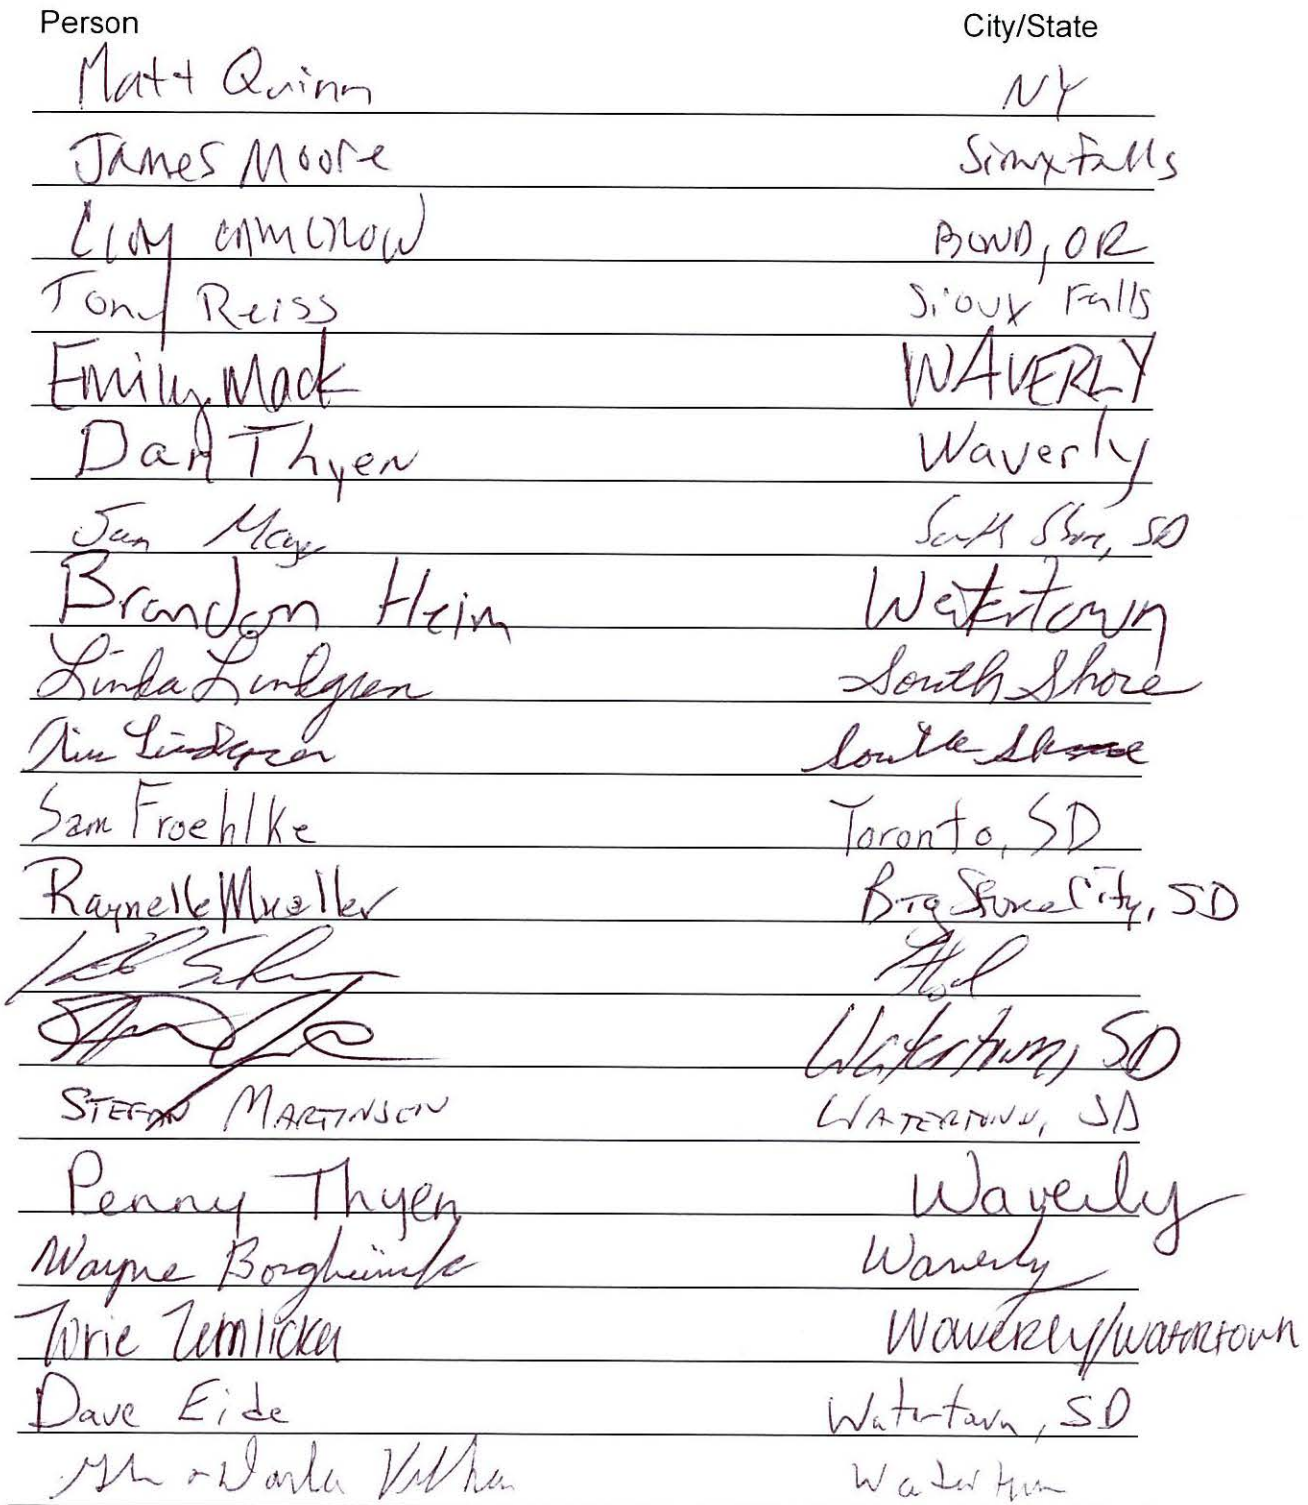 Person City/State
Matt Quinn NY
James Moore Sioux Falls
Clay Cameron BEND, OR
Tony Reiss Sioux Falls
Emily Mack WAVERLY
Dan Thyen Waverly
Jan May South Shore, SD
Brandon Heim Watertown
Linda Lindgren South Shore
Lindgren South Shore
Sam Froehlke Toronto, SD
Raynelle Mueller Big Stone City, SD
Watertown, SD
STEFAN MARTINSON WATERTOWN, SD
Penny Thyen Waverly
Wayne Waverly
Torie Zemlicka Waverly/Watertown
Dave Eide Watertown, SD
Darla Watertown